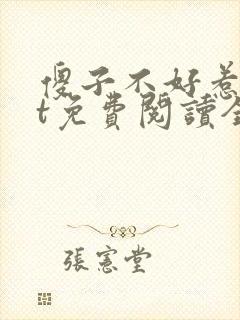 傻子不好惹
t免費閱讀全
張憲堂